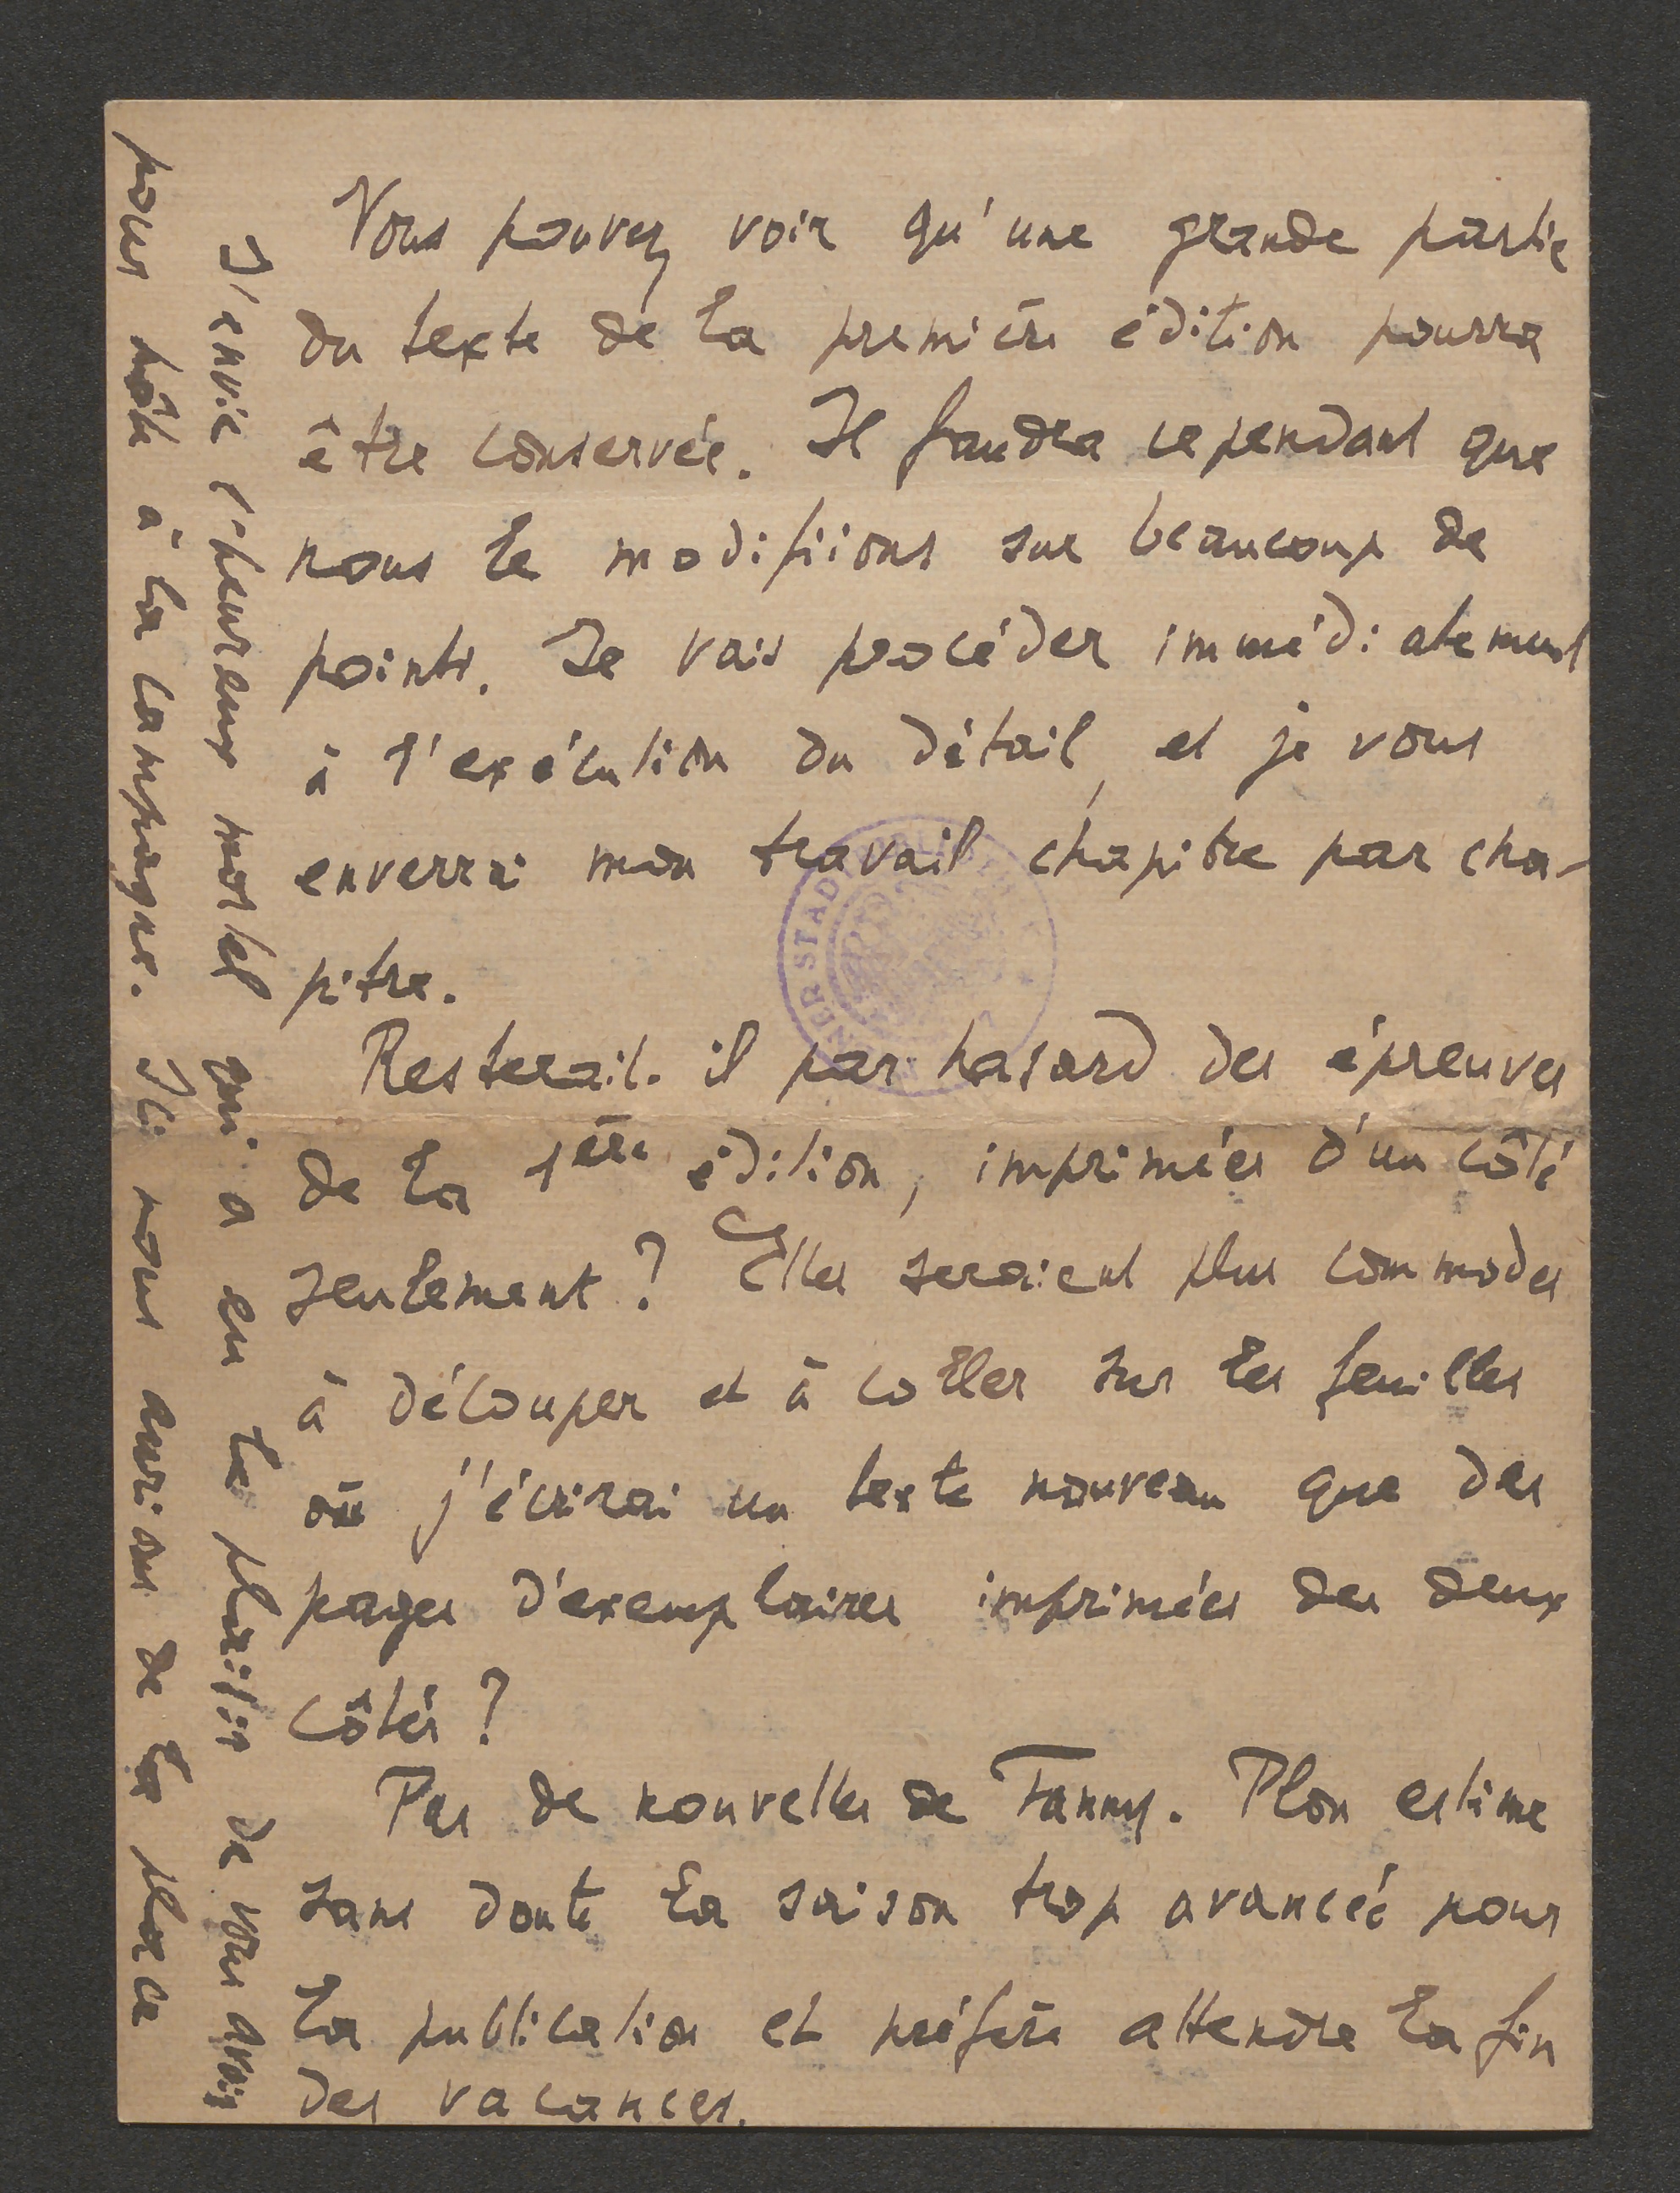 Vous pouvez voir qu'une grande partie
du texte de la première édition pourra
être conservée. Il faudra cependant que
nous le modifiions sur beaucoup de
points. Je vais procéder immédiatement
à l'exécution du détail, et je vous
enverrai mon travail chapitre par cha-
pitre.
Resterait-il par hasard des épreuves
de la 1ère édition, imprimées d'un côté
seulement? Elles seraient plus commodes
à découper et à coller sur les feuilles
où j'écrirai un texte nouveau que des
pages d'exemplaires imprimées des deux
côtés?
Pas de nouvelles de Fanny. Plon estime
sans doute la saison trop avancée pour
la publication et préfère attendre la fin
des vacances.
J'envie l'heureux mortel qui a eu le plaisir de vous avoir
pour hôte à la campagne. Ici nous aurions de la place
NER STAD